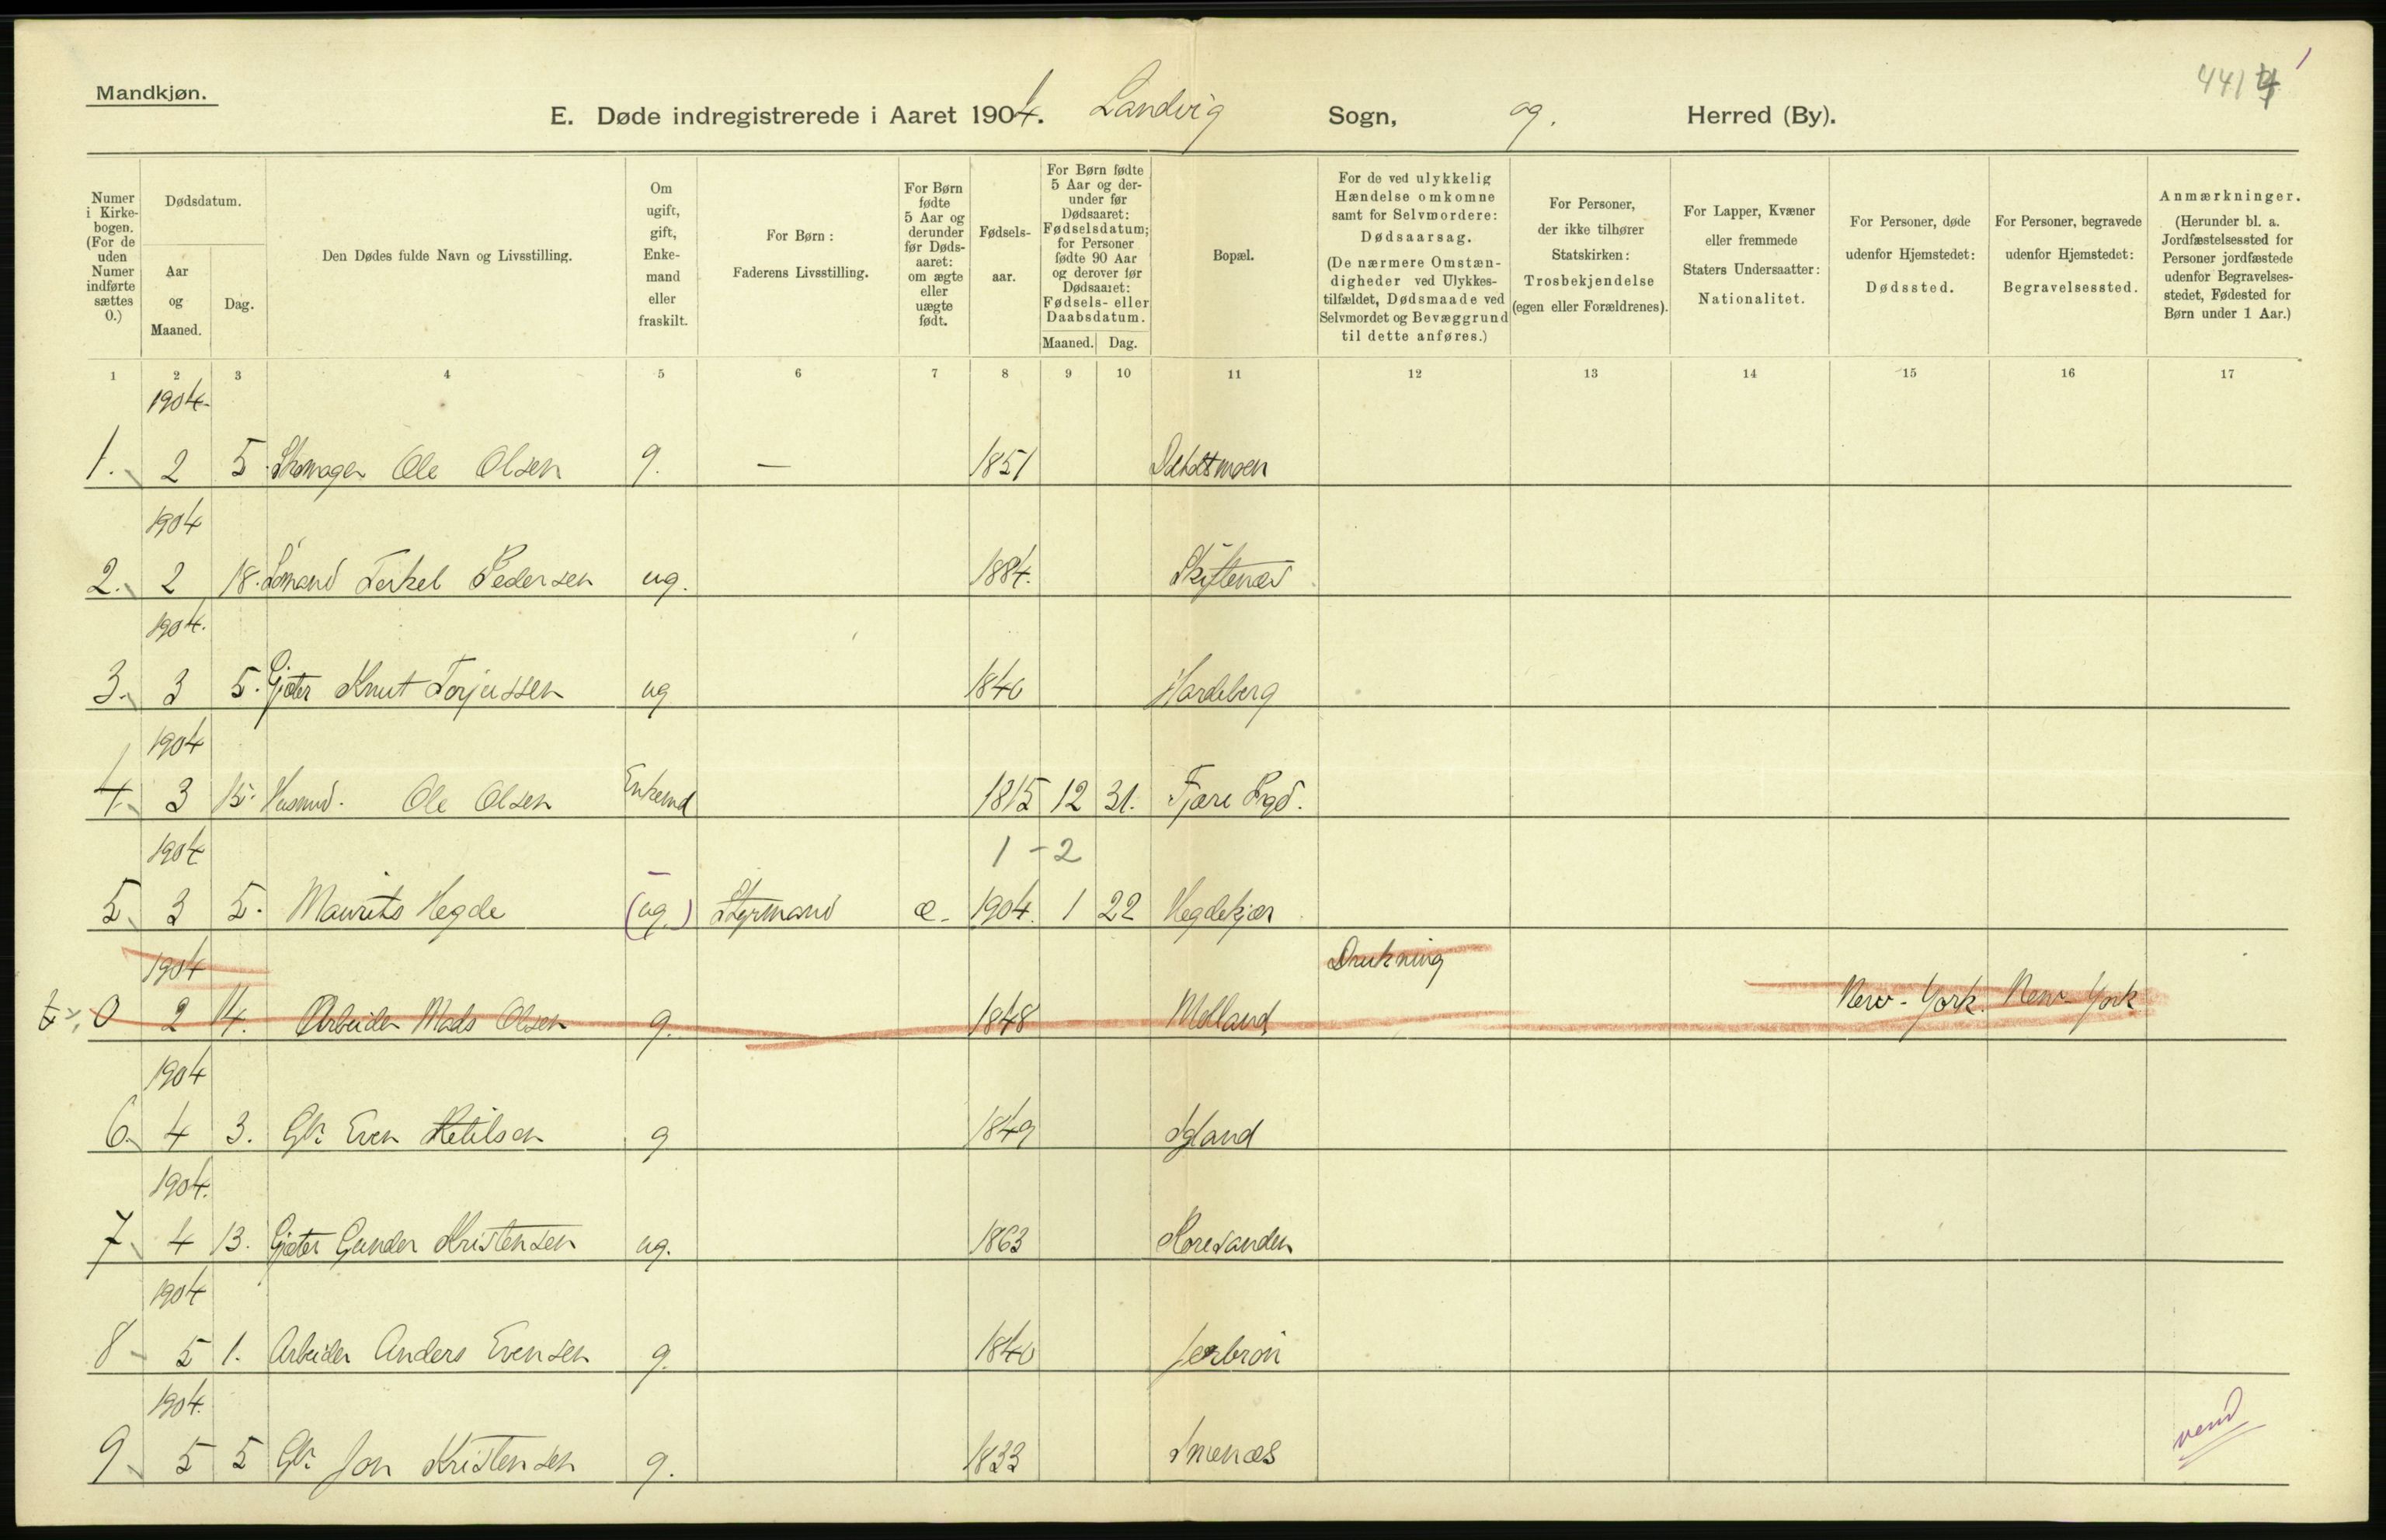 Mandkjøn.
4414 1
E. Døde indregistrerede i Aaret 1904. Landvig Sogn, og. Herred (By).
Numer i Kirke-bogen. (For de uden Numer indførte sættes 0.)
Dødsdatum.
Aar og Maaned.
Dag.
Den Dødes fulde Navn og Livsstilling.
Om ugift, gift, Enke-mand eller fraskilt.
For Børn: Faderens Livsstilling.
For Børn fødte 5 Aar og derunder før Døds-aaret: om ægte eller uægte født.
Fødsels-aar.
For Børn fødte 5 Aar og der-under før Dødsaaret: Fødselsdatum; for Personer fødte 90 Aar og derover før Dødsaaret: Fødsels- eller Daabsdatum.
Maaned. Dag.
Bopæl.
For de ved ulykkelig Hændelse omkomne samt for Selvmordere: Dødsaarsag. (De nærmere Omstæn-digheder ved Ulykkes-tilfældet, Dødsmaade ved Selvmordet og Bevæggrund til dette anføres.)
For Personer, der ikke tilhører Statskirken: Trosbekjendelse (egen eller Forældrenes).
For Lapper, Kvæner eller fremmede Staters Undersaatter: Nationalitet.
For Personer, døde udenfor Hjemstedet: Dødssted.
For Personer, begravede udenfor Hjemstedet: Begravelsessted.
Anmærkninger. (Herunder bl. a. Jordfæstelsessted for Personer jordfæstede udenfor Begravelses-stedet, Fødested for Børn under 1 Aar.)
1 2 3 4 5 6 7 8 9 10 11 12 13 14 15 16 17
1904
1. 2 5 Skomager Ole Olsen g. — 1851
1904
2. 2 18. Sømand Terkel Pedersen ug. 1884. Skiftenæs
1904.
3. 3 5. Gjøter Knut Torjussen ug 1840 Hardeberg
1904
4. 3 15. Husmd. Ole Olsen Enkemd 1815 12 31. Fjære Prgd.
1904 1 - 2
5. 3 5. Maurits Hegde (ug.) Styrmand æ. 1904. 1 22 Hegdekjær
1904 Drukning
0 2 14. Arbeider Mads Olsen g. 1848 Molland New-York. New-York
1904
6. 4 3. Gbr. Even Ketilsen g 1849 Igland
1904.
7. 4 13. Gjøter Gunder Kristensen ug. 1863 Roresanden
1904
8 5 1. Arbeider Anders Evensen g. 1840
1904.
9. 5 5 Gbr. Jon Kristensen g. 1833 Inenæs
vend